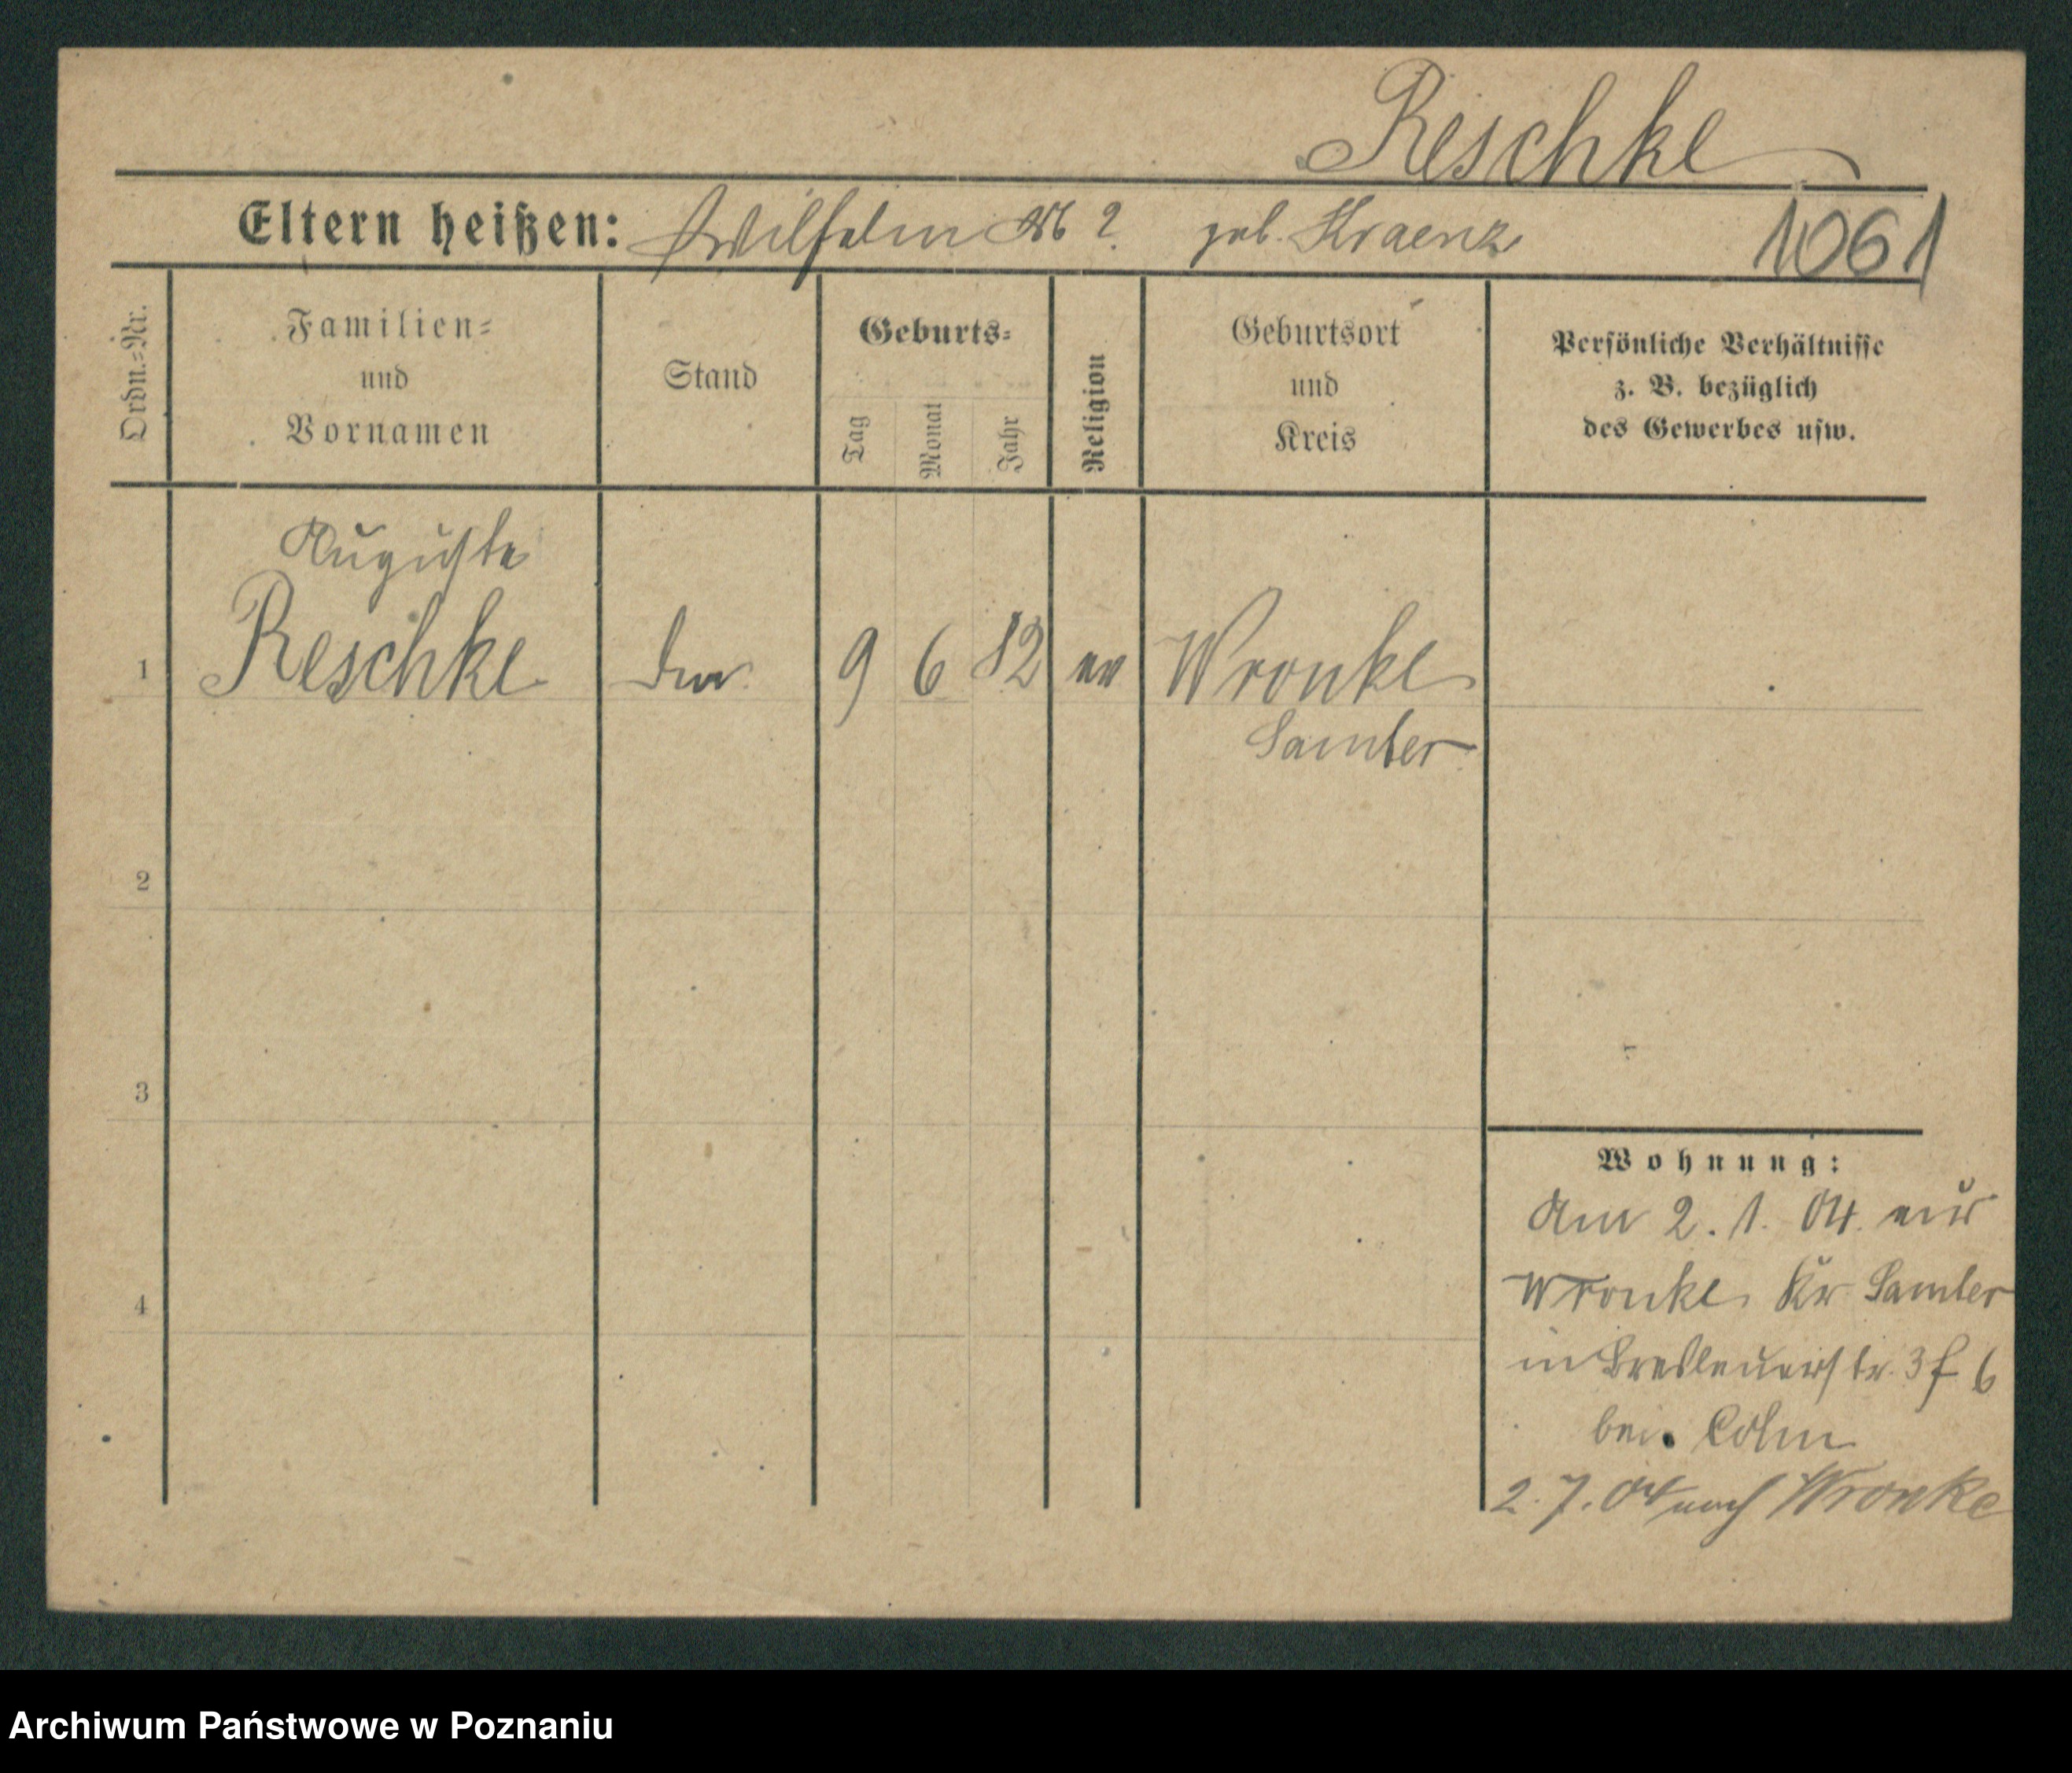 Reschke
Eltern heißen: Wilhelm ? geb. Kraenz
1061
Ordn.-Nr.
Familien-
und
Vornamen
Stand
Geburts-
Tag
Monat
Jahr
Religion
Geburtsort
und
Kreis
Persönliche Verhältnisse
z. B. bezüglich
des Gewerbes usw.
Auguste
1 Reschke 9 6 82 ev Wronke
Samter
2
3
4
Wohnung:
Am 2. 1. 04. aus
Wronke Kr Samter
in Breslauerstr. 3
bei Cohn
2. 7. 04 nach Wronke
Archiwum Państwowe w Poznaniu